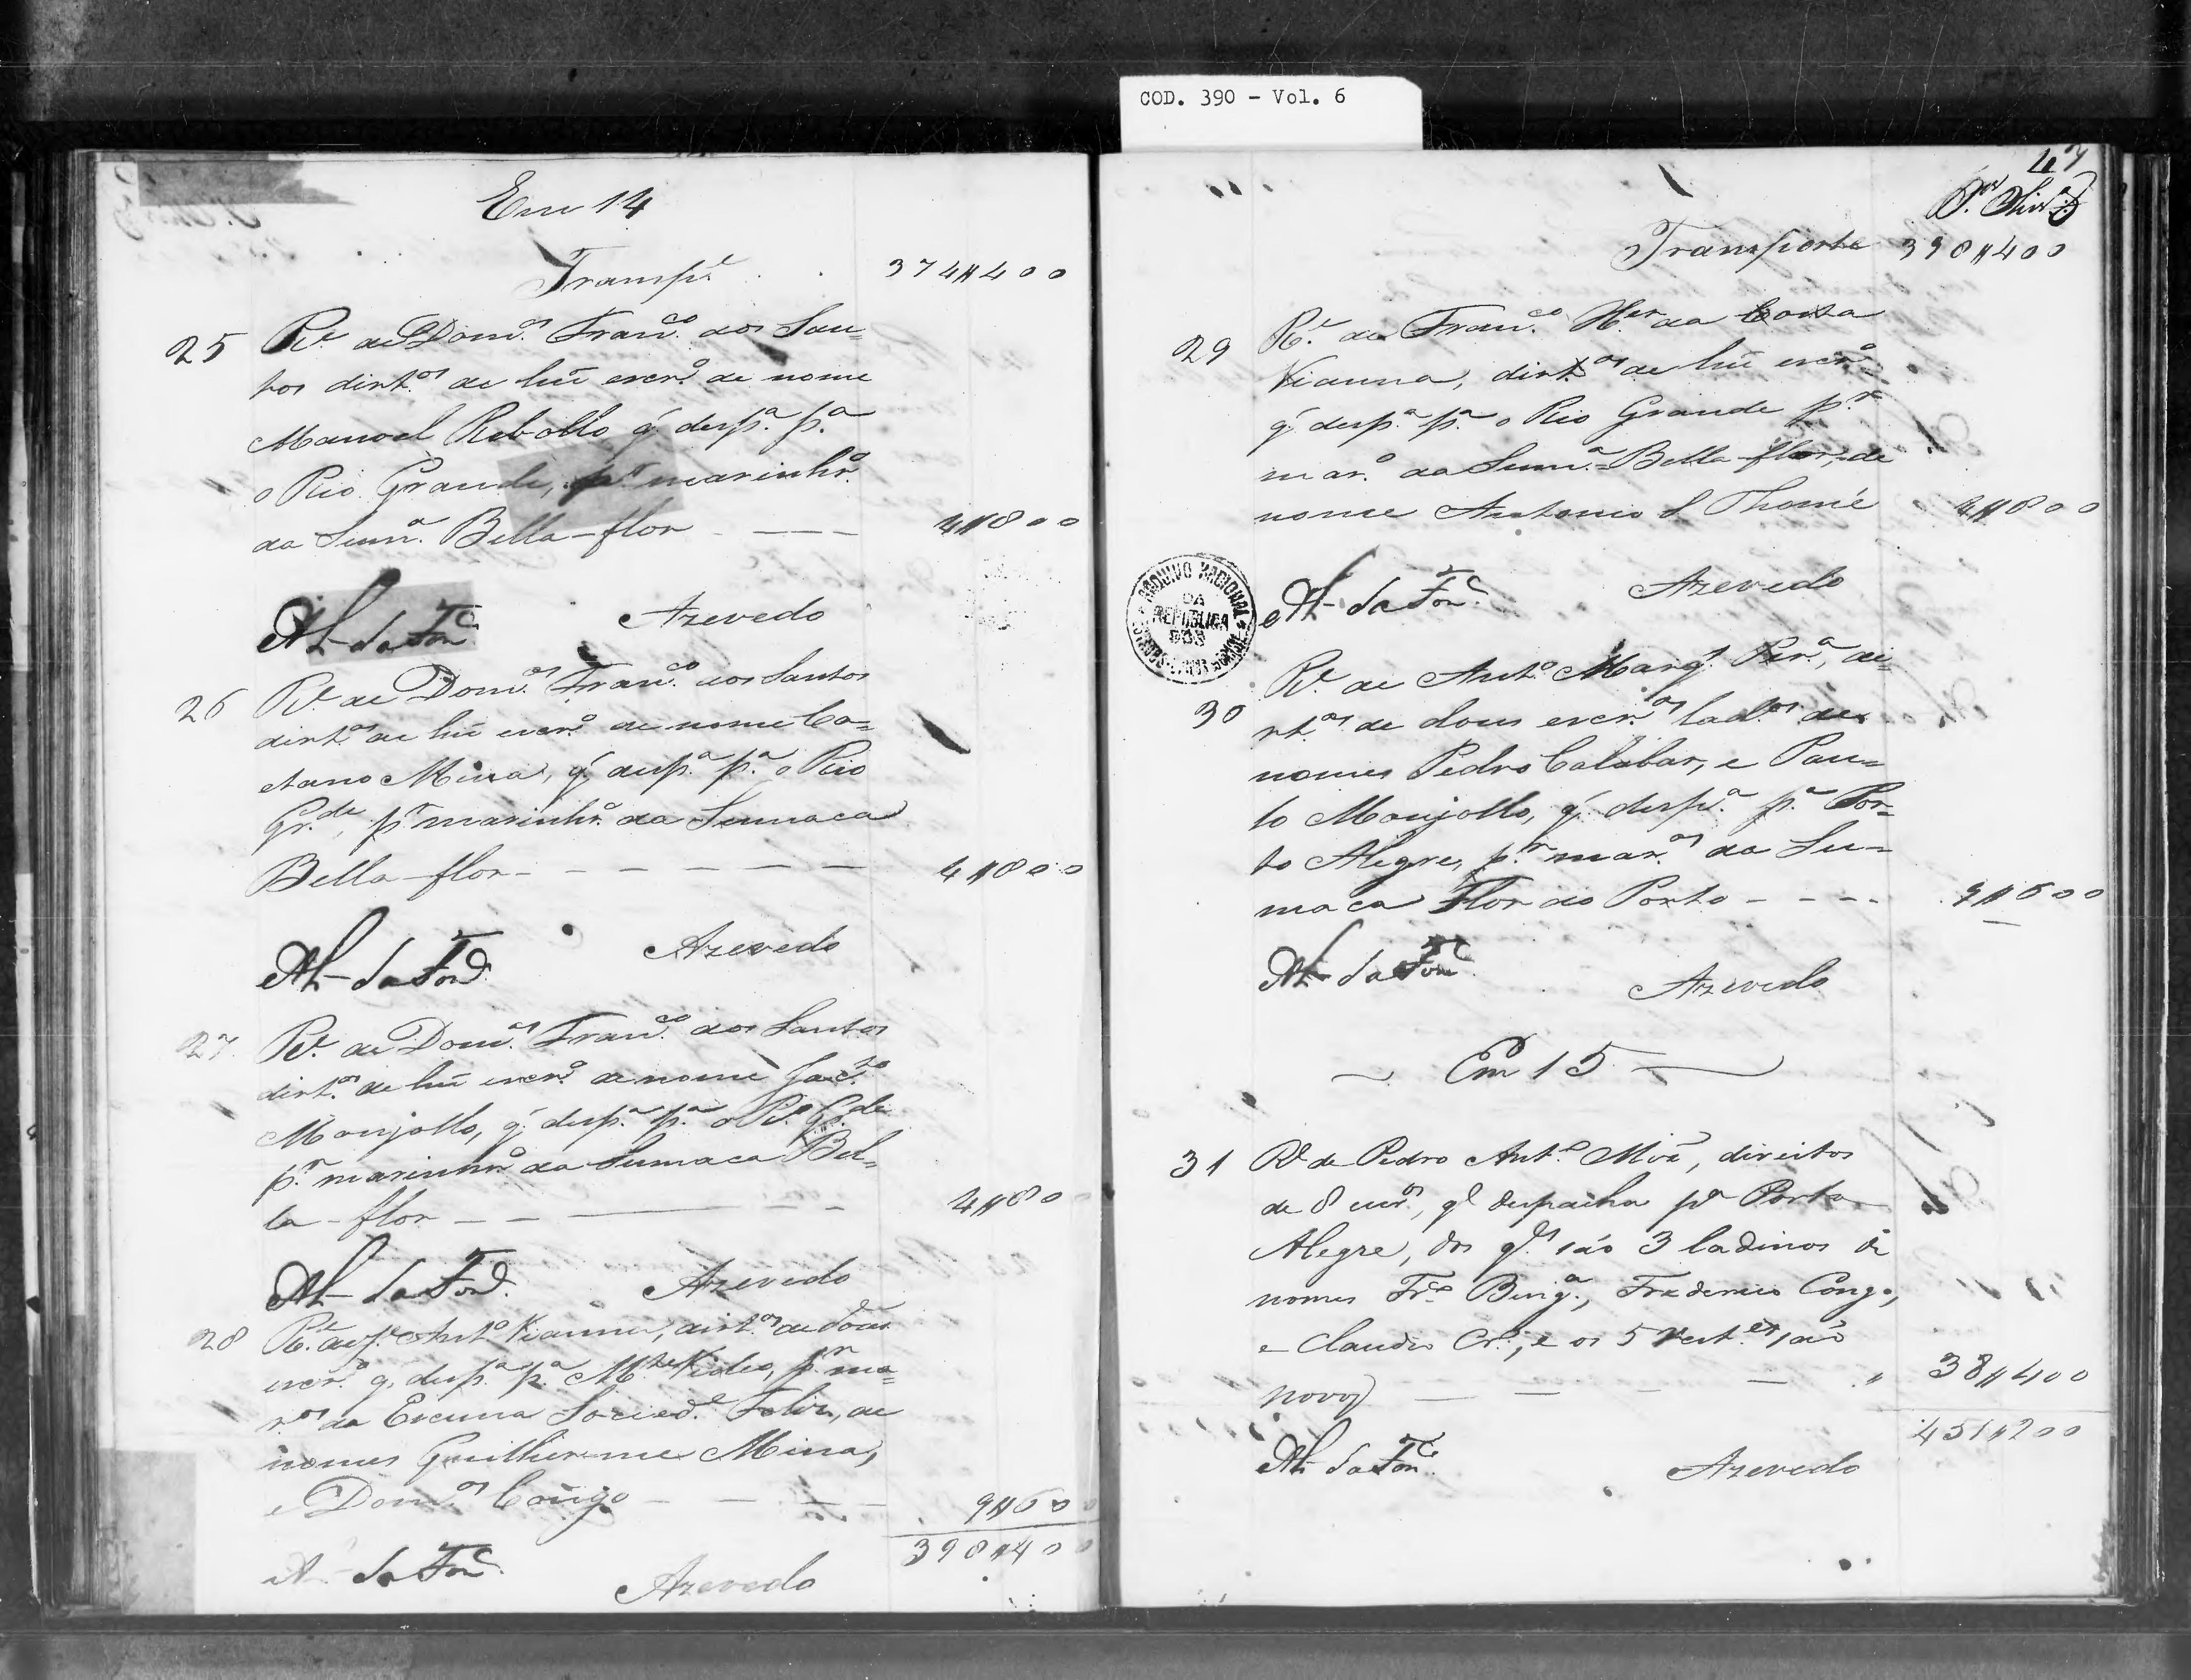 COD. 390 - Vol. 6
Em 14
Transp.e 374#400
25 R.e de Dom.os Fran.co dos San=
tos dirt.os de hũ escr.o de nome
Manoel Rebollo q' desp.a p.a
o Rio Grande, p.r marinhr.o
da Sum.a Bella-flor - — — 4#800
Al- da Fon.ca Azevedo
26 R.e de Dom.os Fran.co dos Santos
dirt.os de hũ escr.o de nome Ca=
etano Mina, q' desp.a p.a o Rio
Gr.de, p.r marinhr.o da Sumaca
Bella-flor - - - - - - 4#800
Al- da Fon.ca Azevedo
27 R.e de Dom.os Fran.co dos Santos
dirt.os de hũ escr.o de nome Jac.to
Monjollo, q' desp.a p.a o R.o G.de
p.r marinhr.o da Sumaca Bel=
la-flor - - — - - 4#800
Al- da Fon.ca Azevedo
28 R.e de J.e Ant.o Vianna, dirt.os de dous
escr.os q' desp.a p.a M.te Video, p.r ma=
r.os da Escuna Socied.e Feliz, de
nomes Guilherme Mina,
e Dom.os Congo - — — - 9#600
398#400
Al- da Fon.ca Azevedo
Transporte 398#400
29 R.e de Fran.co da Costa
Vianna, dirt.os de hũ escr.o
q' desp.a p.a o Rio Grande p.r
mar.o da Sum.a Bella-flor, de
nome Antonio S Thomé 4#800
ARQUIVO NACIONAL
DA
REPUBLICA
DOS
Al- da Fon.ca Azevedo
30 R.e de Ant.o Marq.s Per.a, di=
rt.os de dous escr.os lad.os de
nomes Pedro Calabar, e Pau=
lo Monjollo, q' desp.a p.a Por=
to Alegre, p.r mar.os da Su=
maca Flor do Porto - - - - 9#600
Al- da Fon.ca Azevedo
Em 15
31 R.e de Pedro Ant.o , direitos
de 8 escr.os, q' despacha p.a Porto
Alegre, dos q.s são 3 ladinos de
nomes Fr.co Beng.a, Frederico Congo,
e Claudio Cr.o, e os 5 rest.es são
novos — — - — 38#400
451#200
Al- da Fon.ca Azevedo